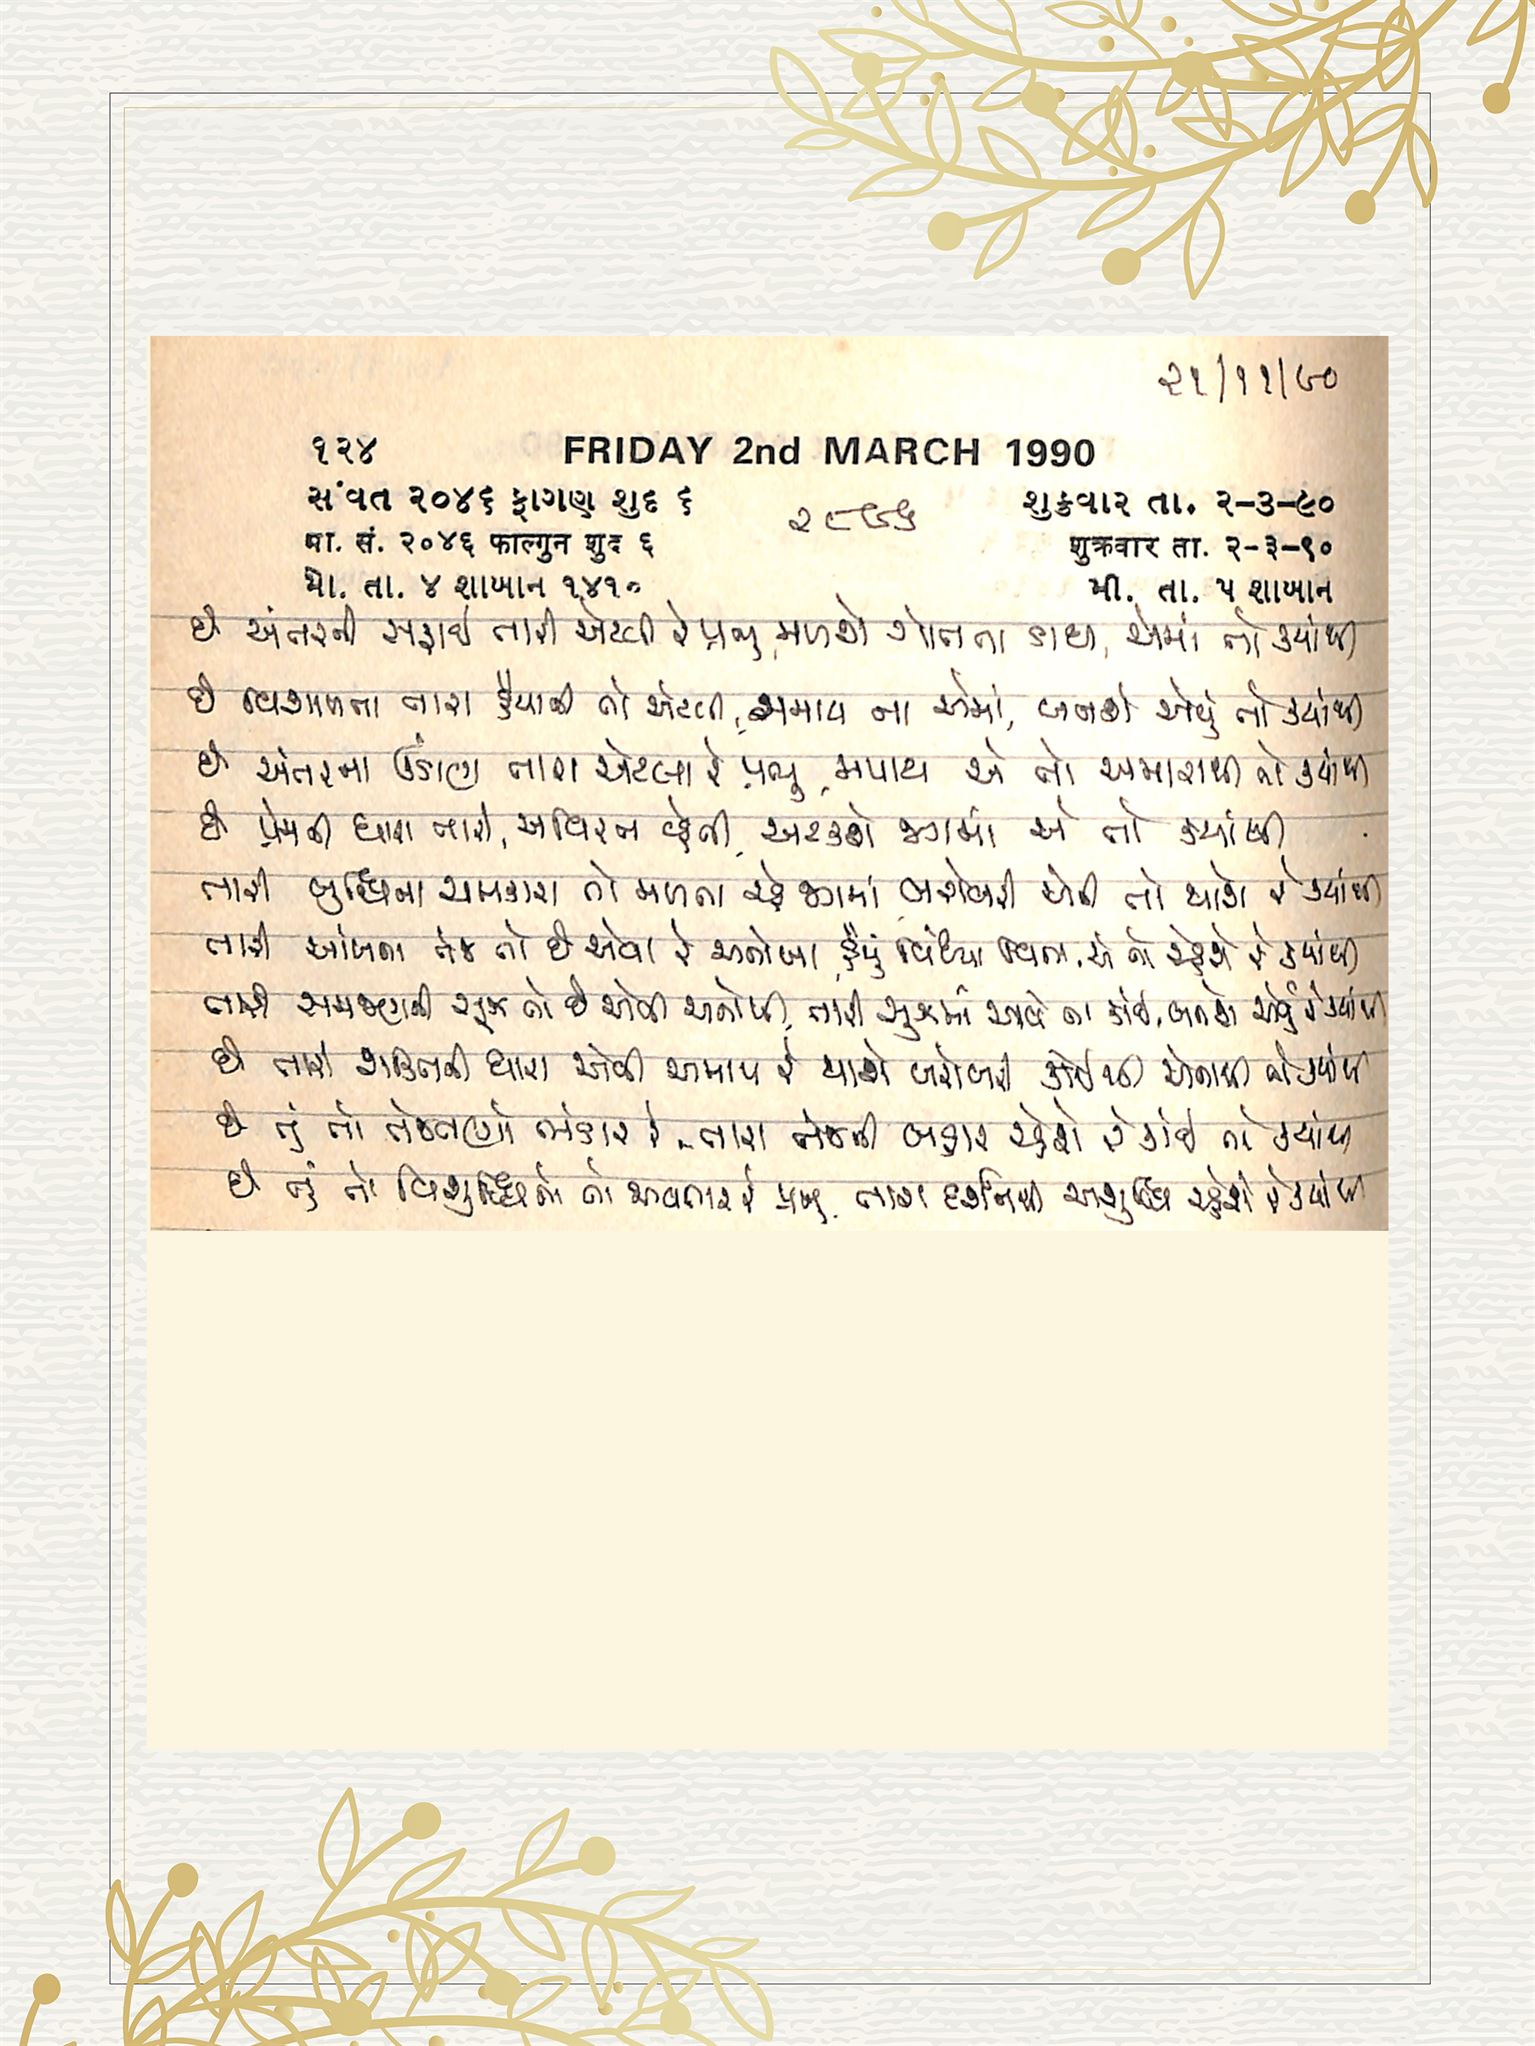 ૨૧/૧૧/૯૦
૧૨૪ FRIDAY 2nd MARCH 1990
સંવત ૨૦૪૬ ફાગણ શુદ ૬ શુક્રવાર તા. ૨-૩-૯૦
૨૯૯૫
मा. सं. २०४६ फाल्गुन शुद ६ शुक्रवार ता. २-३-९०
પા. તા. ૪ શાબાન ૧૪૧૦ મી. તા. ૫ શાબાન
છે અંતરની સફાઈ તારી એટલી રે પ્રભુ, મળશે ગોતતા ડાઘ, એમાં તો ક્યાંથી
છે વિશાળતા તારા હૈયાની તો એટલી, સમાય ના એમાં, બનશે એવું તો ક્યાંથી
છે અંતરના ઊંડાણ તારા એટલા રે પ્રભુ, મપાય એ તો અમારાથી તો ક્યાંથી
છે પ્રેમની ધારા તારી, અવિરત વ્હેતી, અટકશે જગમાં એ તો ક્યાંથી
તારી બુદ્ધિના ચમકારા તો મળતા રહે જગમાં, બરોબરી એની તો થાશે રે ક્યાંથી
તારી આંખના તેજ તો છે એવા રે અનોખા, હૈયું વિંધ્યા વિના, એ તો રહેશે રે ક્યાંથી
તારી સમજણની સૂઝ તો છે એવી અનોખી, તારી સૂઝમાં આવે ના કોઈ, બનશે એવું રે ક્યાંથી
છે તારી શક્તિની ધારા એવી અમાપ રે થાશે બરોબરી કોઈથી એનાથી તો ક્યાંથી
છે તું તો તેજતણો ભંડાર રે, તારા તેજની બહાર રહેશે રે કોઈ તો ક્યાંથી
છે તું તો વિશુદ્ધિનો તો અવતાર રે પ્રભુ, તારા દર્શનથી અશુદ્ધિ રહેશે રે ક્યાંથી